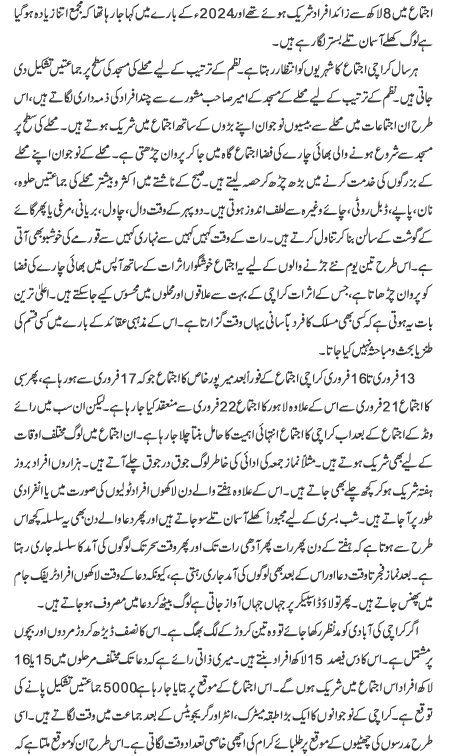 اجتماع میں 8 لاکھ سے زائد افراد شریک ہوئے تھے اور 2024ء کے بارے میں کہا جا رہا تھا کہ مجمع اتنا زیادہ ہو گیا
ہے لوگ کھلے آسمان تلے بستر لگا رہے ہیں۔
ہر سال کراچی اجتماع کا شہریوں کو انتظار رہتا ہے۔ نظم کے ترتیب کے لیے محلے کی مسجد کی سطح پر جماعتیں تشکیل دی
جاتی ہیں۔ نظم کے ترتیب کے لیے محلے کے مسجد کے امیر صاحب مشورے سے چند افراد کی ذمہ داری لگاتے ہیں، اس
طرح ان اجتماعات میں محلے سے بیسیوں نوجوان اپنے بڑوں کے ساتھ اجتماع میں شریک ہوتے ہیں۔ محلے کی سطح پر
مسجد سے شروع ہونے والی بھائی چارے کی فضا اجتماع گاہ میں جا کر پروان چڑھتی ہے۔ محلے کے نوجوان اپنے محلے
کے بزرگوں کی خدمت کرنے میں بڑھ چڑھ کر حصہ لیتے ہیں۔ صبح کے ناشتے میں اکثر و بیشتر محلے کی جماعتیں حلوہ،
نان، پاپے، ڈبل روٹی، چائے وغیرہ سے لطف اندوز ہوتی ہیں۔ دوپہر کے وقت دال، چاول، بریانی، مرغی یا پھر گائے
کے گوشت کے سالن بنا کر تناول کرتے ہیں۔ رات کے وقت کہیں کہیں سے نہاری کہیں سے قورمے کی خوشبو بھی آتی
ہے۔ اس طرح تین یوم نئے جڑنے والوں کے لیے یہ اجتماع خوشگوار اثرات کے ساتھ آپس میں بھائی چارے کی فضا
کو پروان چڑھاتا ہے، جس کے اثرات کراچی کے بہت سے علاقوں اور محلوں میں محسوس کیے جا سکتے ہیں۔ اعلیٰ ترین
بات یہ ہوتی ہے کہ کسی بھی مسلک کا فرد بآسانی یہاں وقت گزارتا ہے۔ اس کے مذہبی عقائد کے بارے میں کسی قسم کی
طنز یا بحث و مباحثہ نہیں کیا جاتا۔
13 فروری تا 16 فروری کراچی اجتماع کے فوراً بعد میرپور خاص کا اجتماع جو کہ 17 فروری سے ہو رہا ہے، پھر سبی
کا اجتماع 21 فروری سے اس کے علاوہ لاہور کا اجتماع 22 فروری سے منعقد کیا جا رہا ہے۔ لیکن ان سب میں رائے
ونڈ کے اجتماع کے بعد اب کراچی کا اجتماع انتہائی اہمیت کا حامل بنتا چلا جا رہا ہے۔ ان اجتماع میں لوگ مختلف اوقات
کے لیے بھی شریک ہوتے ہیں۔ مثلاً نماز جمعہ کی ادائی کی خاطر لوگ جوق در جوق چلے آتے ہیں۔ ہزاروں افراد بروز
ہفتہ شریک ہو کر کچھ چلے بھی جاتے ہیں۔ اس کے علاوہ ہفتے والے دن لاکھوں افراد ٹولیوں کی صورت میں یا انفرادی
طور پر آ جاتے ہیں۔ شب بسری کے لیے مجبوراً کھلے آسمان تلے سو جاتے ہیں اور پھر دعا والے دن بھی یہ سلسلہ کچھ اس
طرح سے ہوتا ہے کہ ہفتے کے دن پھر رات پھر آدھی رات تک اور پھر وقت سحر تک لوگوں کی آمد کا سلسلہ جاری رہتا
ہے۔ بعد نماز فجر تا وقت دعا اور اس کے بعد بھی لوگوں کی آمد جاری رہتی ہے، کیونکہ دعا کے وقت لاکھوں افراد ٹریفک جام
میں پھنس جاتے ہیں۔ پھر تو لاؤڈ اسپیکر پر جہاں جہاں آواز جاتی ہے لوگ بیٹھ کر دعا میں مصروف ہو جاتے ہیں۔
اگر کراچی کی آبادی کو مدنظر رکھا جائے تو وہ تین کروڑ کے لگ بھگ ہے۔ اس کا نصف ڈیڑھ کروڑ مردوں اور بچوں
پر مشتمل ہے۔ اس کا دس فیصد 15 لاکھ افراد بنتے ہیں۔ میری ذاتی رائے ہے کہ دعا تک مختلف مرحلوں میں 15 یا 16
لاکھ افراد اس اجتماع میں شریک ہوں گے۔ اس اجتماع کے موقع پر بتایا جا رہا ہے 5000 جماعتیں تشکیل پانے کی
توقع ہے کراچی کے نوجوانوں کا ایک بڑا طبقہ میٹرک، انٹر اور گریجویٹس کے بعد جماعت میں وقت لگاتے ہیں۔ اسی
طرح مدرسوں کی چھٹیوں کے موقع پر طلبائے کرام کی اچھی خاصی تعداد وقت لگاتی ہے۔ اس طرح ان کو موقع ملتا ہے کہ